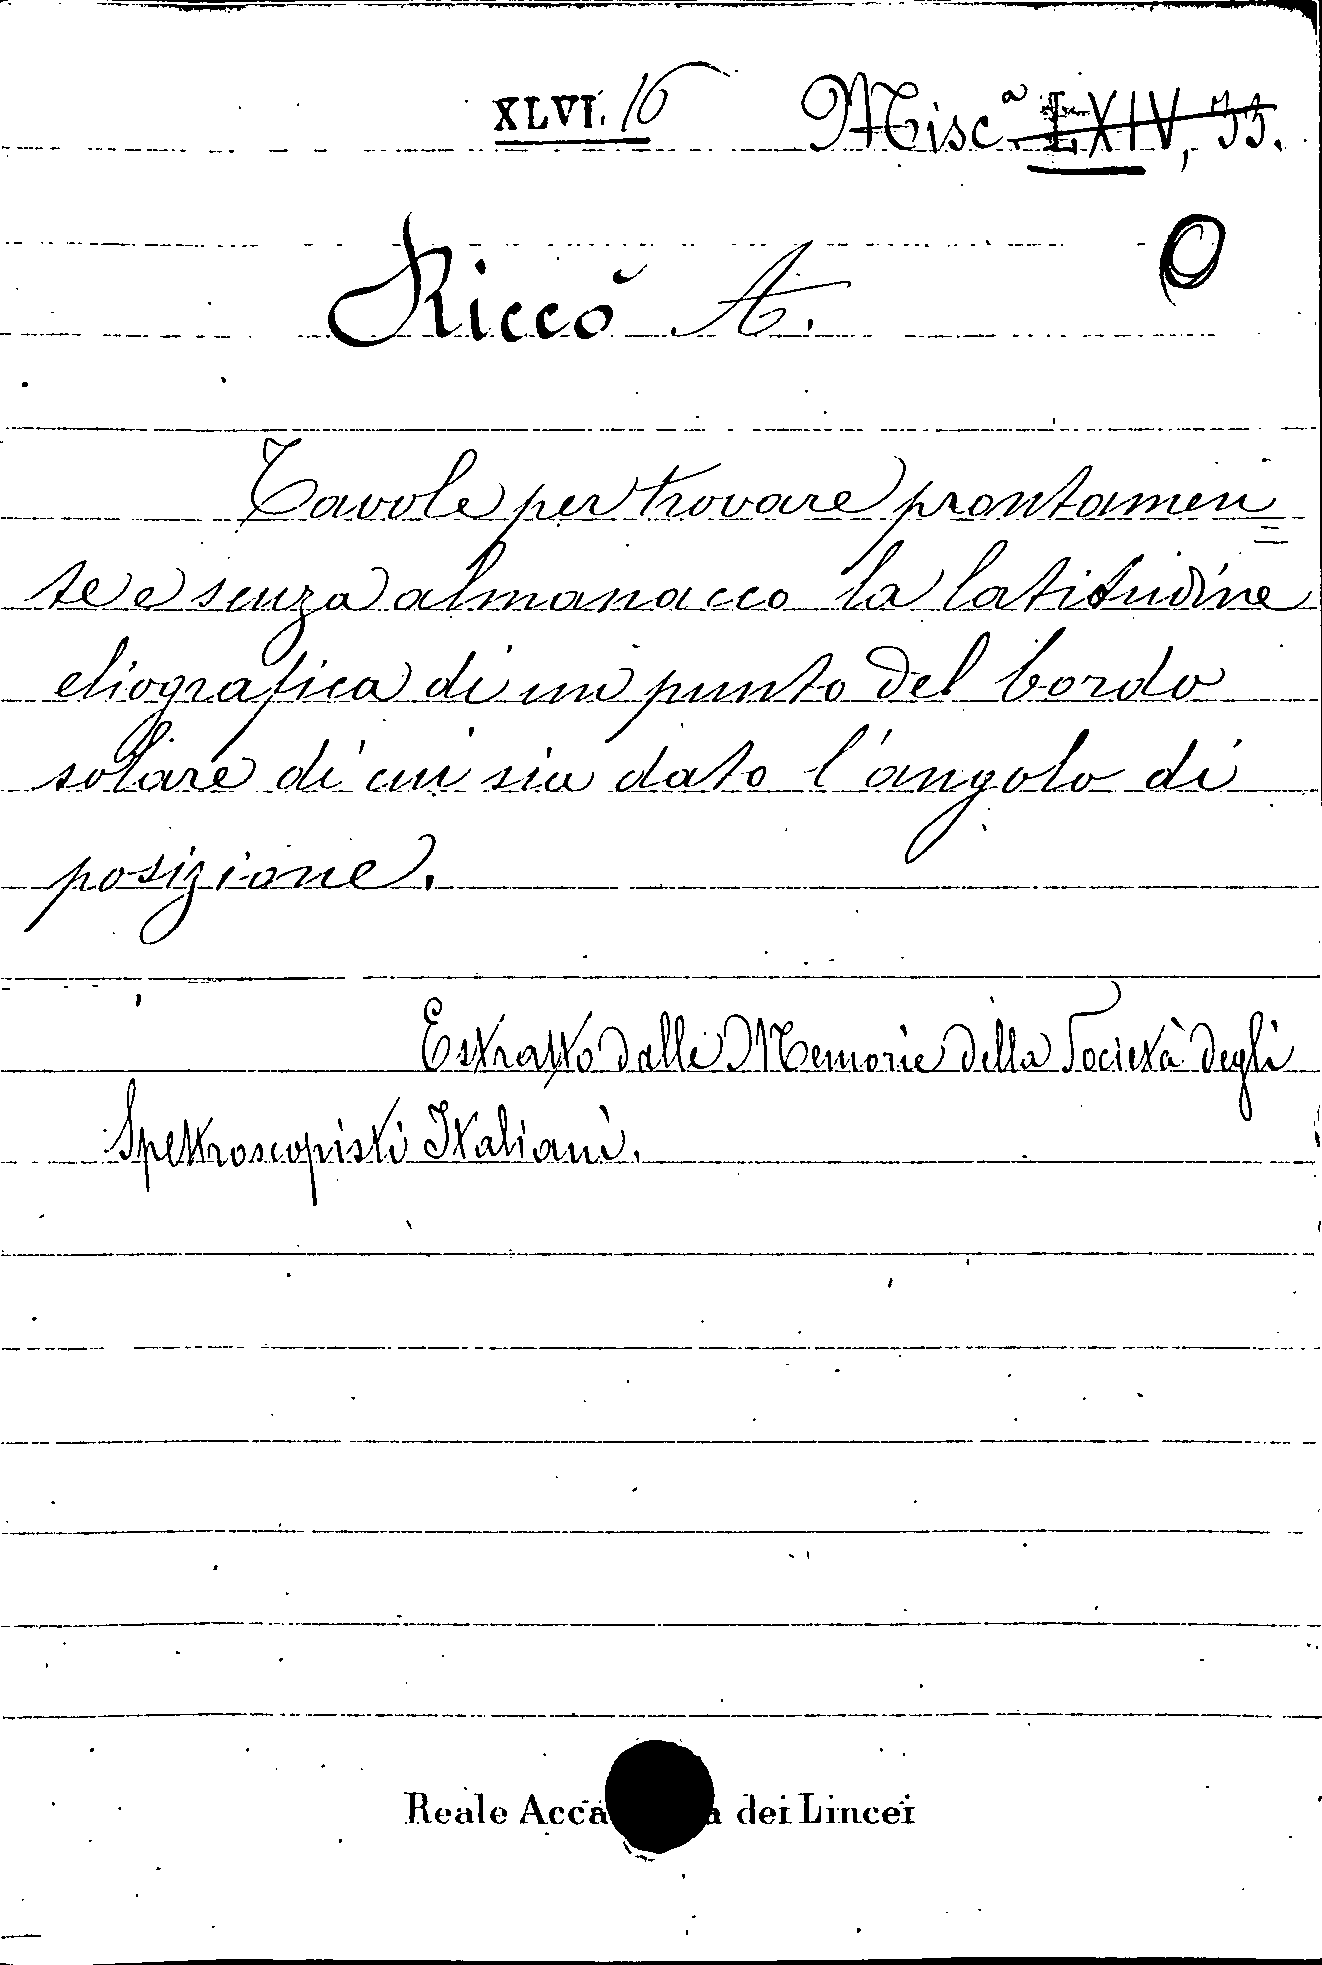 XLVI. 16 Misc.ª LXIV, 33.
O
Riccò A.
Tavole per trovare prontamen
te e senza almanacco la latitudine
eliografica di un punto del bordo
solare di cui sia dato l'angolo di
posizione.
Estratto dalle Memorie della Società degli
Spettroscopisti Italiani.
Reale Acca a dei Lincei